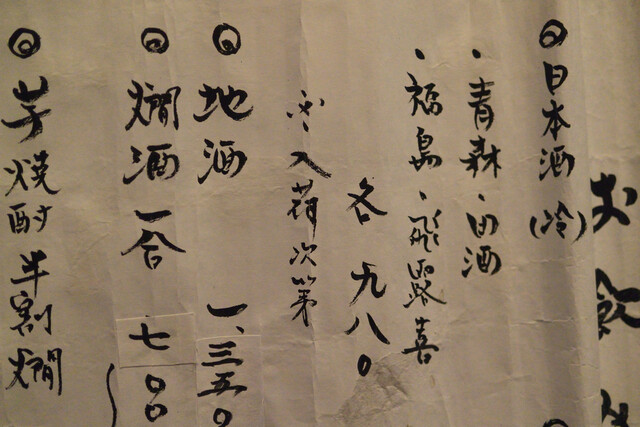 お飲
◎日本酒(冷)
・青森・田酒
・福島・飛露喜
各 九八〇
入荷次第
◎地酒 一、三五〇
◎燗酒 一合 七〇〇
◎芋焼酎半割燗